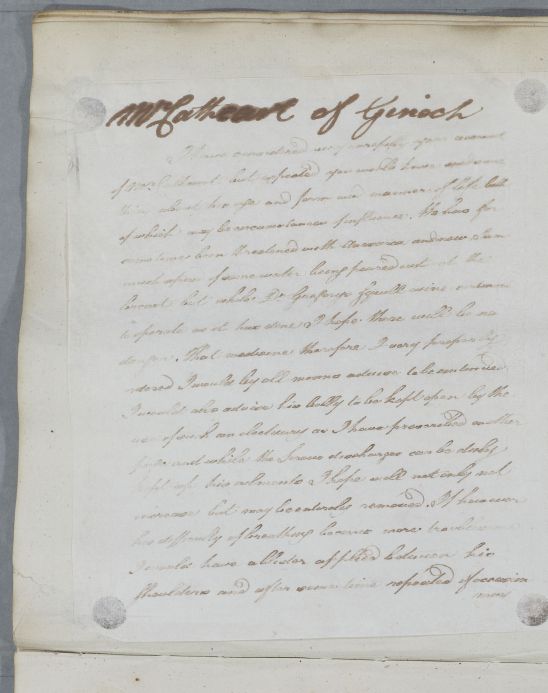 Mr Cathcart of Genoch
I have considered very carefully your account
of Mr Cathcart but expected you would have
this about his age and form and manner of life both
of which may be circumstances of influence. He has for
sometime been threatened with Anasarca and now I am
much afraid of some water being poured out into the
breast but while Dr squill wine
to operate as it has done I hope there will be no
danger. That medicine therefore I very properly
ordered I would by all means advise to be continued
I would also advise his belly to be kept open by the
use of such an electuary as I have prescribed on other
page and while the serous discharges can be duly
kept up his ailments I hope will not only not
increase but may be entirely removed. If however
his difficulty of breathing become more troublesome
I would have a blister applied between his
shoulders and after some time repeated if occasion